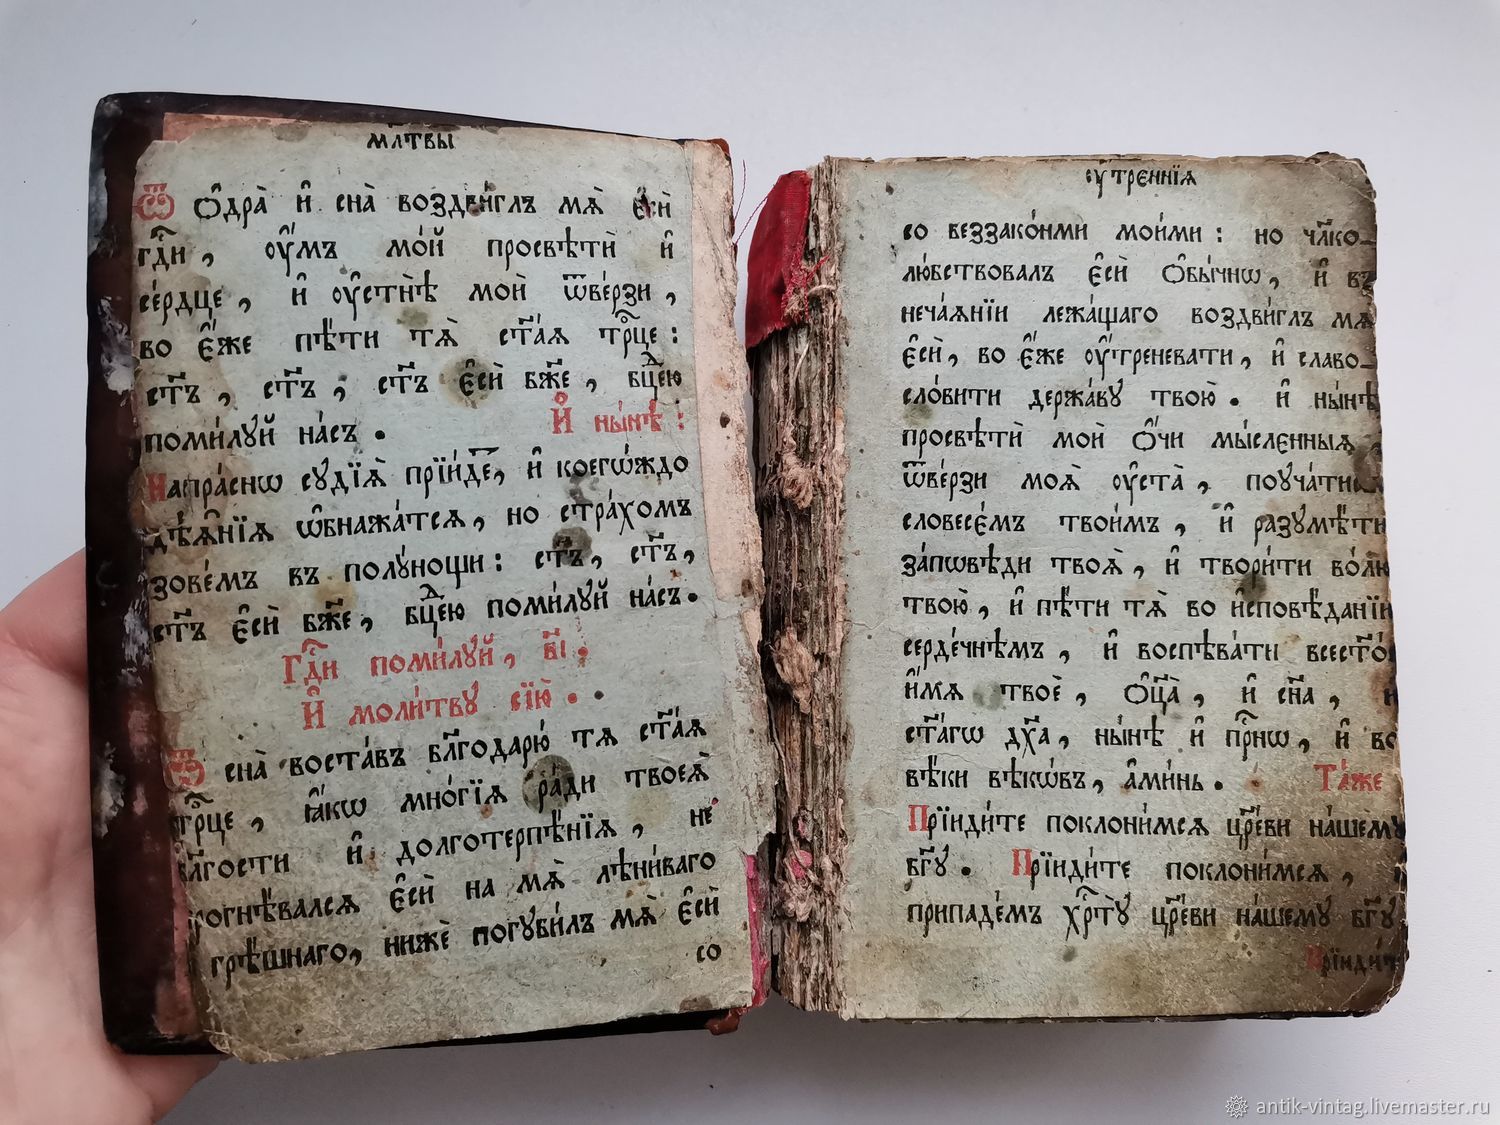 мл҃твы
Ѿ ѻ҆дра̀ и҆ сна̀ воздви́глъ мѧ̀ є҆сѝ
гдⷭ҇и, ᲂу҆́мъ мо́й просвѣтѝ и҆
се́рдце, и҆ ᲂу҆стнѣ̀ моѝ ѿве́рзи,
во є҆́же пѣ́ти тѧ̀ ст҃а́ѧ трⷪ҇це:
ст҃ъ, ст҃ъ, ст҃ъ є҆сѝ бж҃е, бцⷣею
поми́лꙋй на́съ. И҆ ны́нѣ:
Напра́снѡ сꙋдїѧ̀ прїи́де, и҆ коегѡ́ждо
дѣѧ̑нїѧ ѡ҆бнажа́тсѧ, но стра́хомъ
зове́мъ въ полꙋ́нощи: ст҃ъ, ст҃ъ,
ст҃ъ є҆сѝ бж҃е, бцⷣею поми́лꙋй на́съ.
Гдⷭ҇и поми́лꙋй, в҃і.
И҆ моли́твꙋ сїю̀.
Ѿ сна̀ воста́въ блг҃одарю́ тѧ ст҃а́ѧ
трⷪ҇це, ꙗ҆́кѡ мно́гїѧ ра́ди твоеѧ̀
бл҃гости и҆ долготерпѣ́нїѧ, не
прогнѣ́валсѧ є҆сѝ на мѧ̀ лѣни́ваго
грѣ́шнаго, нижѐ погꙋби́лъ мѧ̀ є҆сѝ
со
ᲂу҆́трєннїѧ
со беззако́нми мои́ми: но чл҃ко-
лю́бствовалъ є҆сѝ ѻ҆бы́чнѡ, и҆ въ
неча́ѧнїи лежа́щаго воздви́глъ мѧ̀
є҆сѝ, во є҆́же ᲂу҆́треневати, и҆ славо-
сло́вити держа́вꙋ твою̀. и҆ ны́нѣ
просвѣтѝ моѝ ѻ҆́чи мы́слєнныѧ,
ѿве́рзи моѧ̀ ᲂу҆ста̀, поꙋча́тисѧ
словесє́мъ твои̑мъ, и҆ разꙋмѣ́ти
за́пѡвѣди твоѧ̑, и҆ твори́ти во́лю
твою̀, и҆ пѣ́ти тѧ̀ во и҆сповѣ́данїи
серде́чнѣмъ, и҆ воспѣва́ти всест҃о́е
и҆́мѧ твоѐ, ѻ҆ц҃а̀, и҆ сн҃а, и҆
ст҃а́гѡ дх҃а, ны́нѣ и҆ прⷭ҇нѡ, и҆ во
вѣ́ки вѣкѡ́въ, а҆ми́нь. Та́же
Прїиди́те поклони́мсѧ цр҃е́ви на́шемꙋ
бг҃ꙋ. Прїиди́те поклони́мсѧ, и҆
припаде́мъ хрⷭ҇тꙋ̀ цр҃е́ви на́шемꙋ бг҃ꙋ
Прїиди́т
antik-vintag.livemaster.ru